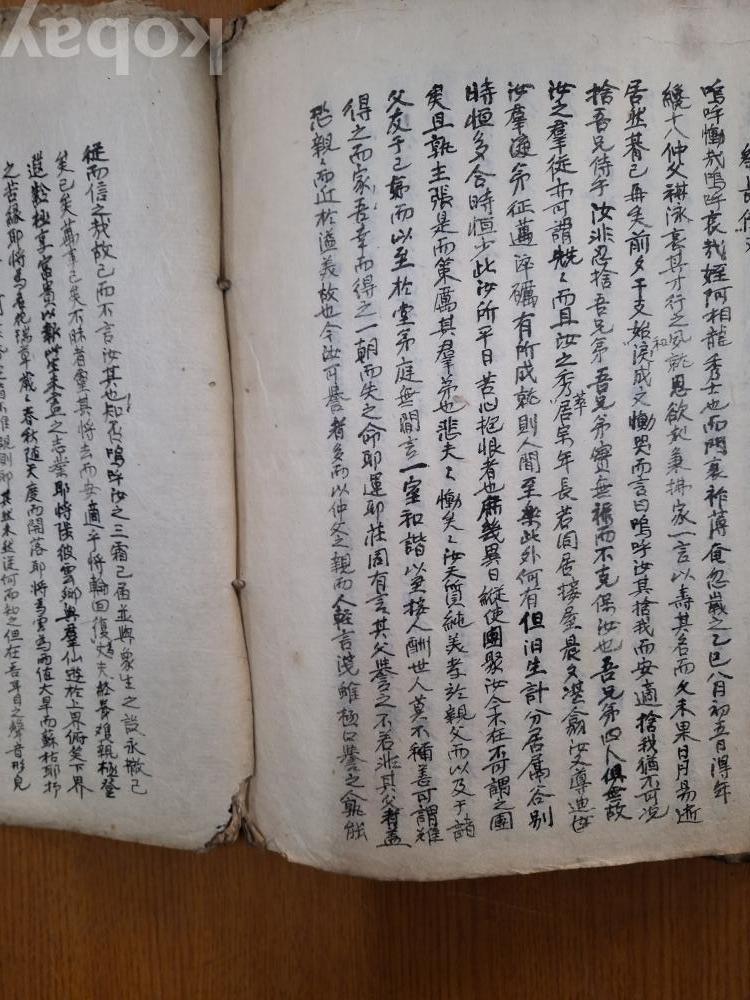 嗚呼慟哉嗚呼哀哉姪阿相龍秀士也而門衰祚薄奄忽歲之乙巳八月初五日得年
纔十八仲父祺泳哀其才行之夙就思欲記兼拂家一言以壽其名而久未果日月易逝
居然朞已再矣前夕干支始淚和成文慟哭而言曰嗚呼汝其捨我而安適捨我猶不可況
捨吾兄侍乎汝非忍捨吾兄弟吾兄弟實無祿而不克保汝也吾兄弟四人俱無故
汝之羣從亦可謂兟兟而且汝之秀萃居宗年長若同居接屋晨夕湛翕汝父導迪
汝羣遹弟征邁淬礪有所成就則人間至樂此外何有但汨生計分居屬谷別
時恒多合時恒少此汝所平日苦心抱恨者也庶幾異日縱使團聚汝今不在不可謂之團
矣且孰主張是而策厲其羣弟也悲夫悲夫慟矣慟矣汝天質純美孝於親父而以及于諸
父友于己弟而以至於堂弟庭無間言一室和諧以至接人酬世人莫不稱善可謂難
得之而家吾幸而得之一朝而失之命耶運耶莊周有言其父譽之不若非其父者蓋
恐親親而近於溢美故也今汝可譽者多而以仲父之親而人輕言淺雖極口譽之孰能
從而信之哉故已而不言汝其也知否嗚呼汝之三霜已屆並與象生之設永撤已
矣已矣萬事已矣不昧者靈其將去而安適乎將輪回復
遐齡極享富貴以報此生未盡之志業耶將張彼雲鄉與羣仙遊於上界俯笑下界
之苦緣耶將爲奇花瑞草歲歲春秋隨天度而開落耶將爲雲爲雨值大旱而蘇枯耶抑
其然未然從何而知之但在吾耳目之聲音形見
kobay